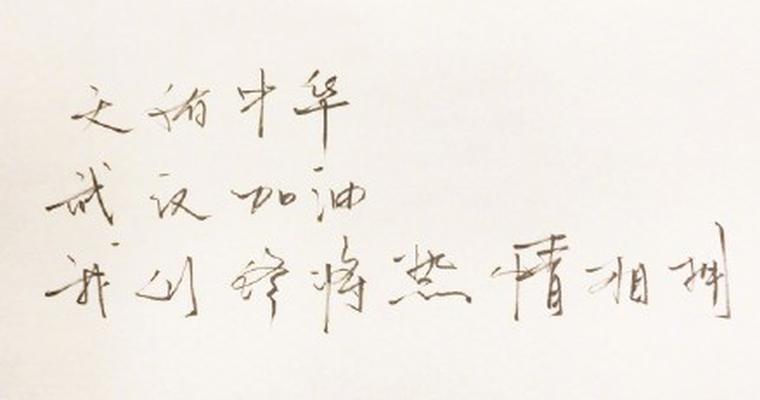 天佑中华
武汉加油
我们终将热情相拥